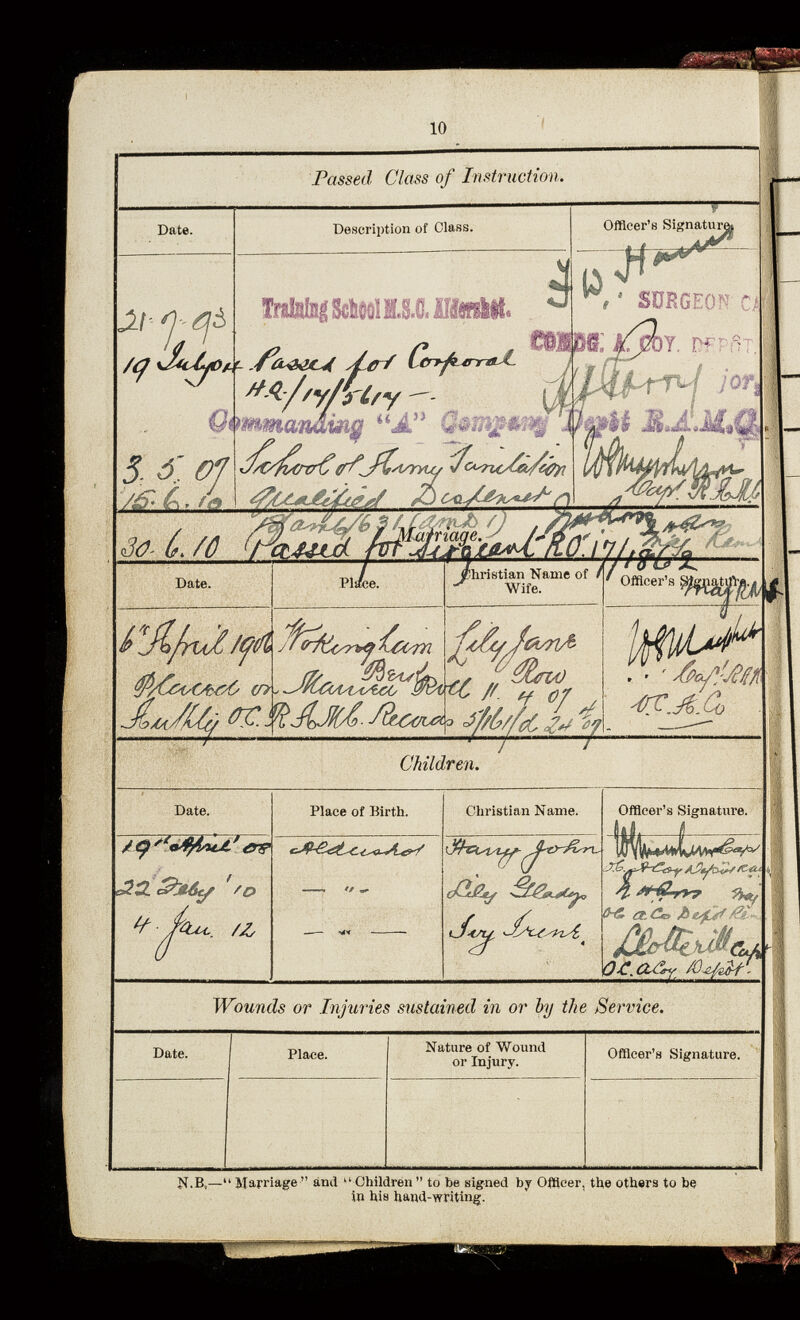 10
Passed Class of Instruction.
Date. Description of Class. Officer's Signature.
21-7-93 Training School M.S.C. Aldershot. SURGEON CA
COMDG. A. COY. DEPÔT.
19 July 04 Passed for Corporal
H.Q./14/5614 —.
Commanding "A" Company Depôt R.A.M.C.
3. 5. 07 School of Army Sanitation
15.6.10 Qualified Dispenser Capt. R.A.M.C
Marriage.
30.6.10 Passed for Sergeant R.O. 17/1862
Date. Place. Christian Name of Wife. Officer's Signature.
6th April 1906 Wokingham Lily Jane
Berks Row Capt. RAM
Placed on Married Roll 11 4 07
Authly O.C. R.A.M.C. Records O.C. A. Co
Children.
Date. Place of Birth. Christian Name. Officer's Signature.
19th April 08 Aldershot Harry John Capt
22 Feby '10 — " — Lily Gladys Maj
OC A Co Depôt
4. Jan. 12 — " — Ivy Irene. Capt
O.C. A Coy Depôt.
Wounds or Injuries sustained in or by the Service.
Date. Place. Nature of Wound or Injury. Officer's Signature.
N.B.—"Marriage" and "Children" to be signed by Officer, the others to be
in his hand-writing.